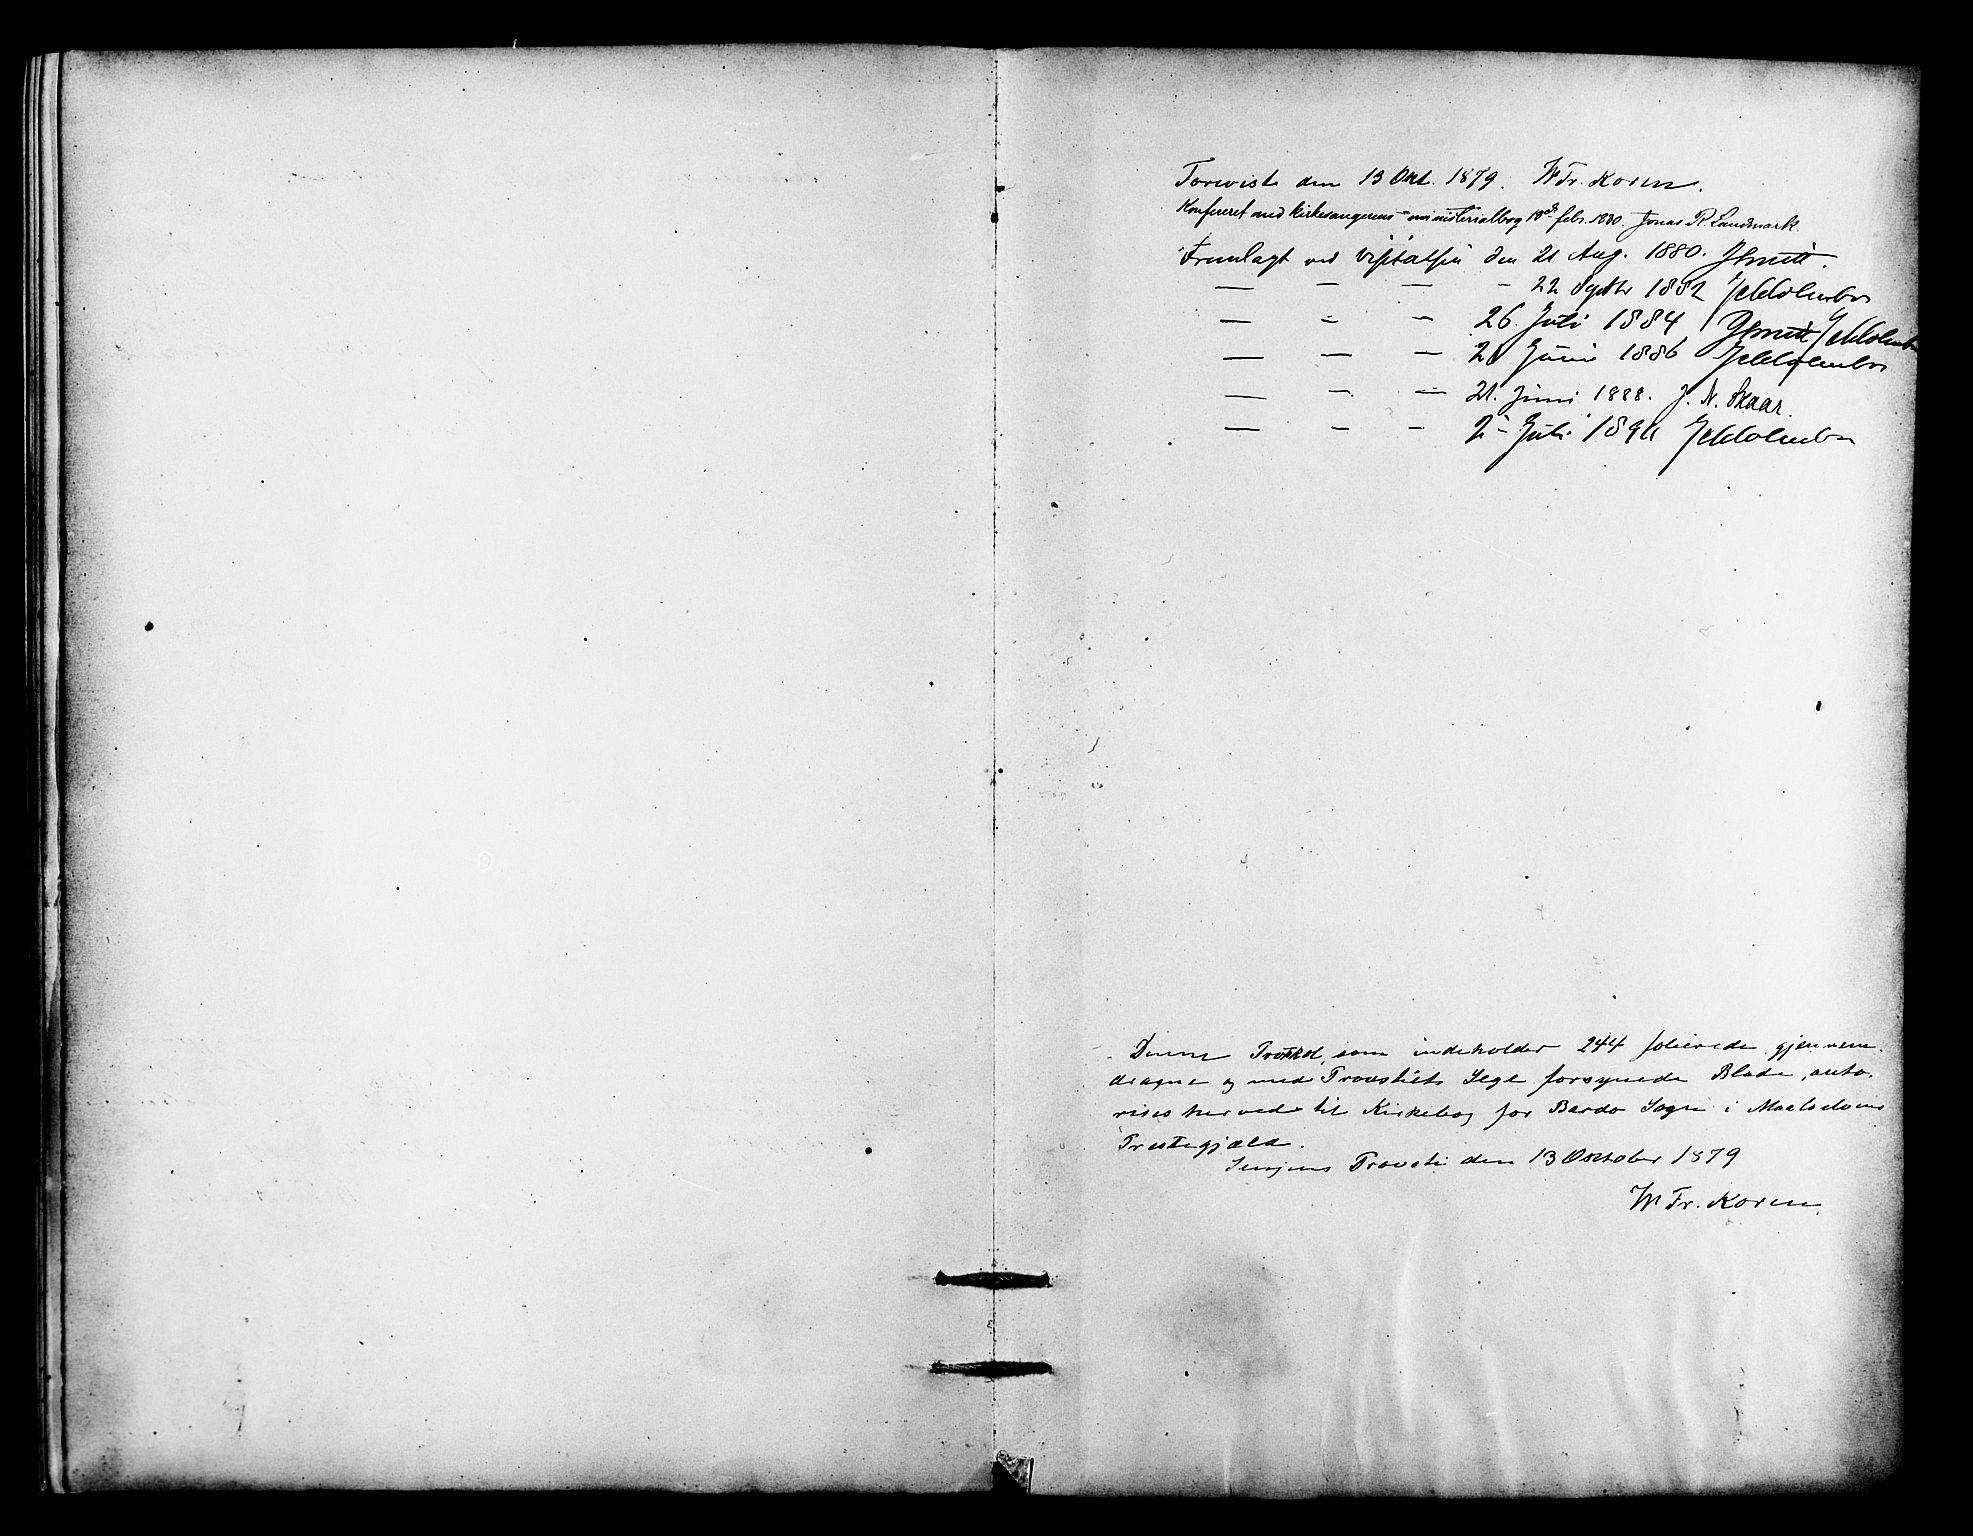 Forevist den 13 Okt. 1879. W Fr. Koren.
Konfereret med Kirkesangerens ministerialbog 18de febr. 1880. Jonas R. Landmark
Fremlagt ved Visitatsen den 21 Aug. 1880. JSmitt.
— — — - 22 Septbr 1882
— — — 26. Juli 1884 JSmitt
— — — Juni 1886
— — — 21. Juni 1888. J. N. Skaar.
— — — 2 - Juli
Denne Protokol, som indeholder 244 folierede gjennem-
dragne og med Provstiets Segl forsynede Blade, auto-
rises herved til Kirkebog for Bardo Sogn i Maalselvens
Præstegjæld.
Senjens Provsti den 13 Oktober 1879
W Fr. Koren.